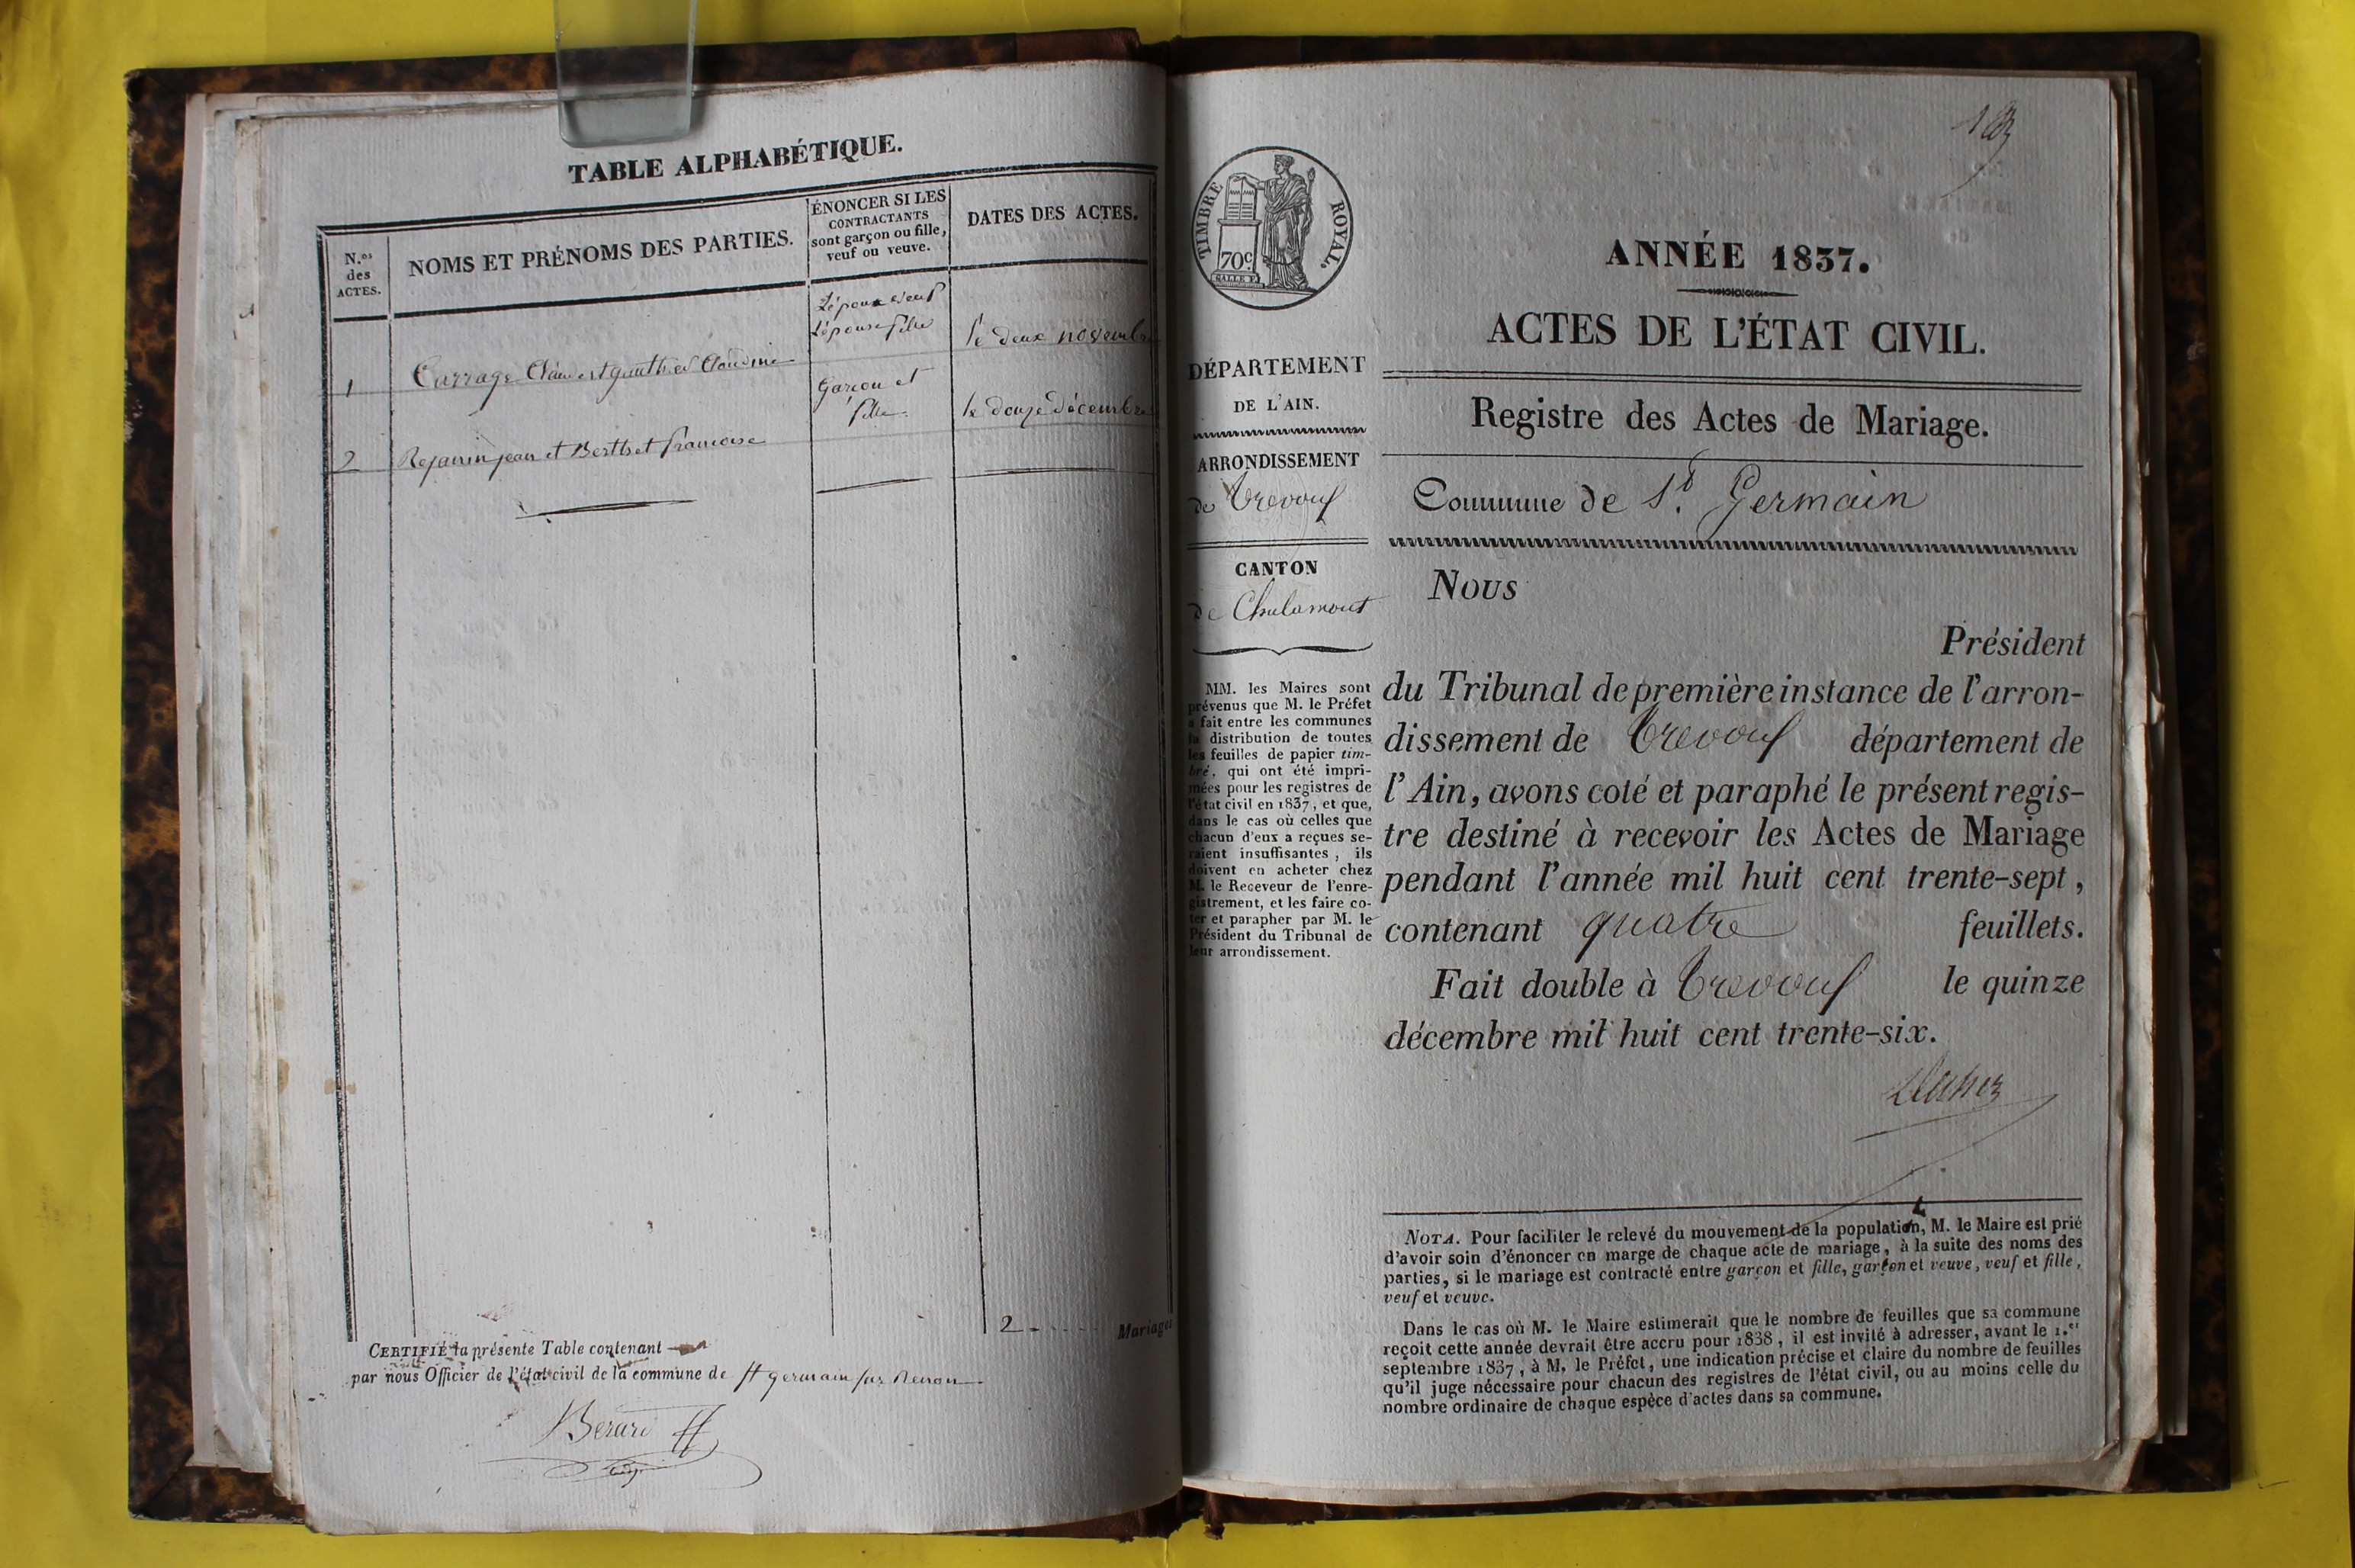 TABLE ALPHABÉTIQUE.
N.os des ACTES.
NOMS ET PRÉNOMS DES PARTIES.
ÉNONCER SI LES
CONTRACTANTS
sont garçon ou fille,
veuf ou veuve.
DATES DES ACTES.
1
L'époux veuf
L'épouse fille
le deux novembre
2
et Berthet francoise
Garcon et
fille
le douze décembre
2 Mariages
CERTIFIÉ la présente Table contenant
par nous Officier de l'état civil de la commune de St germain sur Renon
Berard
TIMBRE ROYAL.
70c
DÉPARTEMENT
DE L'AIN.
ARRONDISSEMENT
de Trevoux
CANTON
de Chalamont
MM. les Maires sont
prévenus que M. le Préfet
a fait entre les communes
la distribution de toutes
les feuilles de papier tim-
bré, qui ont été impri-
mées pour les registres de
l'état civil en 1837, et que,
dans le cas où celles que
chacun d'eux a reçues se-
raient insuffisantes, ils
doivent en acheter chez
M. le Receveur de l'enre-
gistrement, et les faire co-
ter et parapher par M. le
Président du Tribunal de
leur arrondissement.
ANNÉE 1837.
ACTES DE L'ÉTAT CIVIL.
Registre des Actes de Mariage.
Commune de St. Germain
Nous
Président
du Tribunal de première instance de l'arron-
dissement de Trevoux département de
l'Ain, avons coté et paraphé le présent regis-
tre destiné à recevoir les Actes de Mariage
pendant l'année mil huit cent trente-sept,
contenant quatre feuillets.
Fait double à Trevoux le quinze
décembre mil huit cent trente-six.
NOTA. Pour faciliter le relevé du mouvement de la population, M. le Maire est prié
d'avoir soin d'énoncer en marge de chaque acte de mariage, à la suite des noms des
parties, si le mariage est contracté entre garçon et fille, garçon et veuve, veuf et fille,
veuf et veuve.
Dans le cas où M. le Maire estimerait que le nombre de feuilles que sa commune
reçoit cette année devrait être accru pour 1838, il est invité à adresser, avant le 1.er
septembre 1837, à M. le Préfet, une indication précise et claire du nombre de feuilles
qu'il juge nécessaire pour chacun des registres de l'état civil, ou au moins celle du
nombre ordinaire de chaque espèce d'actes dans sa commune.